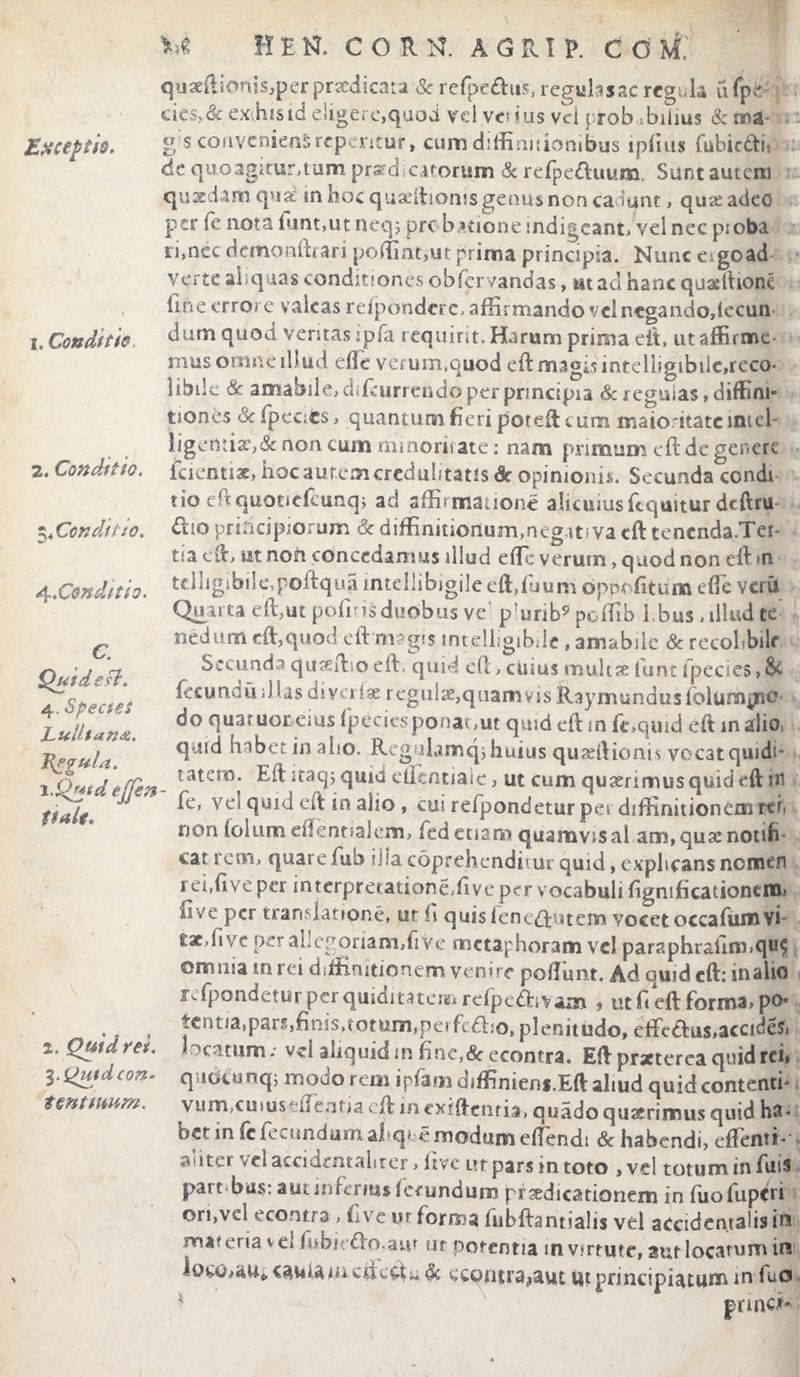 HEN. CORN. AGRIP. COM.
quæſtionis, per prædicata & reſpectus, regulas ac regula ū ſpe-
cies, & ex his id eligere, quod vel verius vel probabilius & ma-
Exceptio.
gis conveniens reperitur, cum diffinitionibus ipſius ſubiecti,
de quo agitur, tum prædicatorum & reſpectuum. Sunt autem
quædam quæ in hoc quæſtionis genus non cadunt, quæ adeo
per ſe nota ſunt, ut neq; probatione indigeant, vel nec proba
ri, nec demonſtrari poſſint, ut prima principia. Nunc ergo ad-
verte aliquas conditiones obſervandas, ut ad hanc quæſtionē
ſine errore valeas reſpondere, affirmando vel negando, ſecun-
1. Conditio.
dum quod veritas ipſa requirit. Harum prima eſt, ut affirme-
mus omne illud eſſe verum, quod eſt magis intelligibile, reco-
libile & amabile, diſcurrendo per principia & regulas, diffini-
tiones & ſpecies, quantum fieri poteſt cum maioritate intel-
ligentiæ, & non cum minoritate: nam primum eſt de genere
2. Conditio.
ſcientiæ, hoc autem credulitatis & opinionis. Secunda condi-
tio eſt quotieſcunq; ad affirmationē alicuius ſequitur deſtru-
3. Conditio.
ctio principiorum & diffinitionum, negativa eſt tenenda. Ter-
tia eſt, ut non concedamus illud eſſe verum, quod non eſt in
4. Conditio.
telligibile, poſtquā intellibigile eſt, ſuum oppoſitum eſſe verū
Quarta eſt, ut poſitis duobus vel pluribꝰ poſſibilibus, illud te
nedum eſt, quod eſt magis intelligibile, amabile & recolibile
C.
Quid eſt.
Secunda quæſtio eſt, quid eſt, cuius multæ ſunt ſpecies, &
4. Species
ſecundū illas diverſæ regulæ, quamvis Raymundus ſolummo-
Lullianæ.
do quatuor eius ſpecies ponat, ut quid eſt in ſe, quid eſt in alio,
Regula.
quid habet in alio. Regulamq; huius quæſtionis vocat quidi-
1. Quid eſſen-
tatem. Eſt itaq; quid eſſentiale, ut cum quærimus quid eſt in
tiale.
ſe, vel quid eſt in alio, cui reſpondetur per diffinitionem rei,
non ſolum eſſentialem, ſed etiam quamvis aliam, quæ notifi-
cat rem, quare ſub illa cōprehenditur quid, explicans nomen
rei, ſive per interpretationē, ſive per vocabuli ſignificationem,
ſive per translationē, ut ſi quis ſenectutem vocet occaſum vi-
tæ, ſive per allegoriam, ſive metaphoram vel paraphraſim, quę
omnia in rei diffinitionem venire poſſunt. Ad quid eſt: in alio
reſpondetur per quiditatem reſpectivam, ut ſi eſt forma, po-
tentia, pars, finis, totum, perfectio, plenitudo, effectus, accidēs,
2. Quid rei.
locatum: vel aliquid in fine, & econtra. Eſt præterea quid rei,
3. Quid con-
quocunq; modo rem ipſam diffiniens. Eſt aliud quid contenti-
tentiuum.
vum, cuius eſſentia eſt in exiſtentia, quādo quærimus quid ha-
bet in ſe ſecundum aliquē modum eſſendi & habendi, eſſenti-
aliter vel accidentaliter, ſive ut pars in toto, vel totum in ſuis
partibus: aut inferius ſecundum prædicationem in ſuo ſuperi
ori, vel econtra, ſive ut forma ſubſtantialis vel accidentalis in
materia vel ſubiecto, aut ut potentia in virtute, aut locatum in
loco, aut cauſa in effectu & econtra, aut ut principiatum in ſuo
princi-